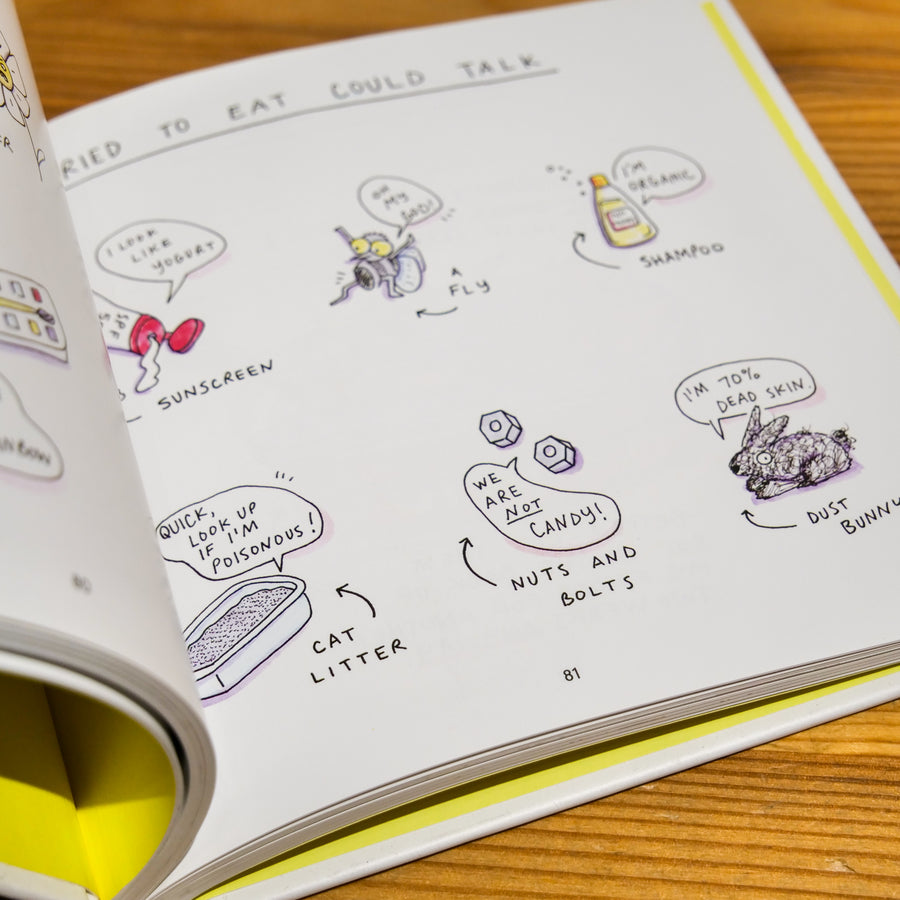 RIED TO EAT COULD TALK
I LOOK
LIKE
YOGURT
SPF
SUNSCREEN
OH
MY
GOD!
A
FLY
I'M
ORGANIC
SHAMPOO
QUICK,
LOOK UP
IF I'M
POISONOUS!
CAT
LITTER
WE
ARE
NOT
CANDY!
NUTS AND
BOLTS
I'M 70%
DEAD SKIN.
DUST
BUNNY
80
81